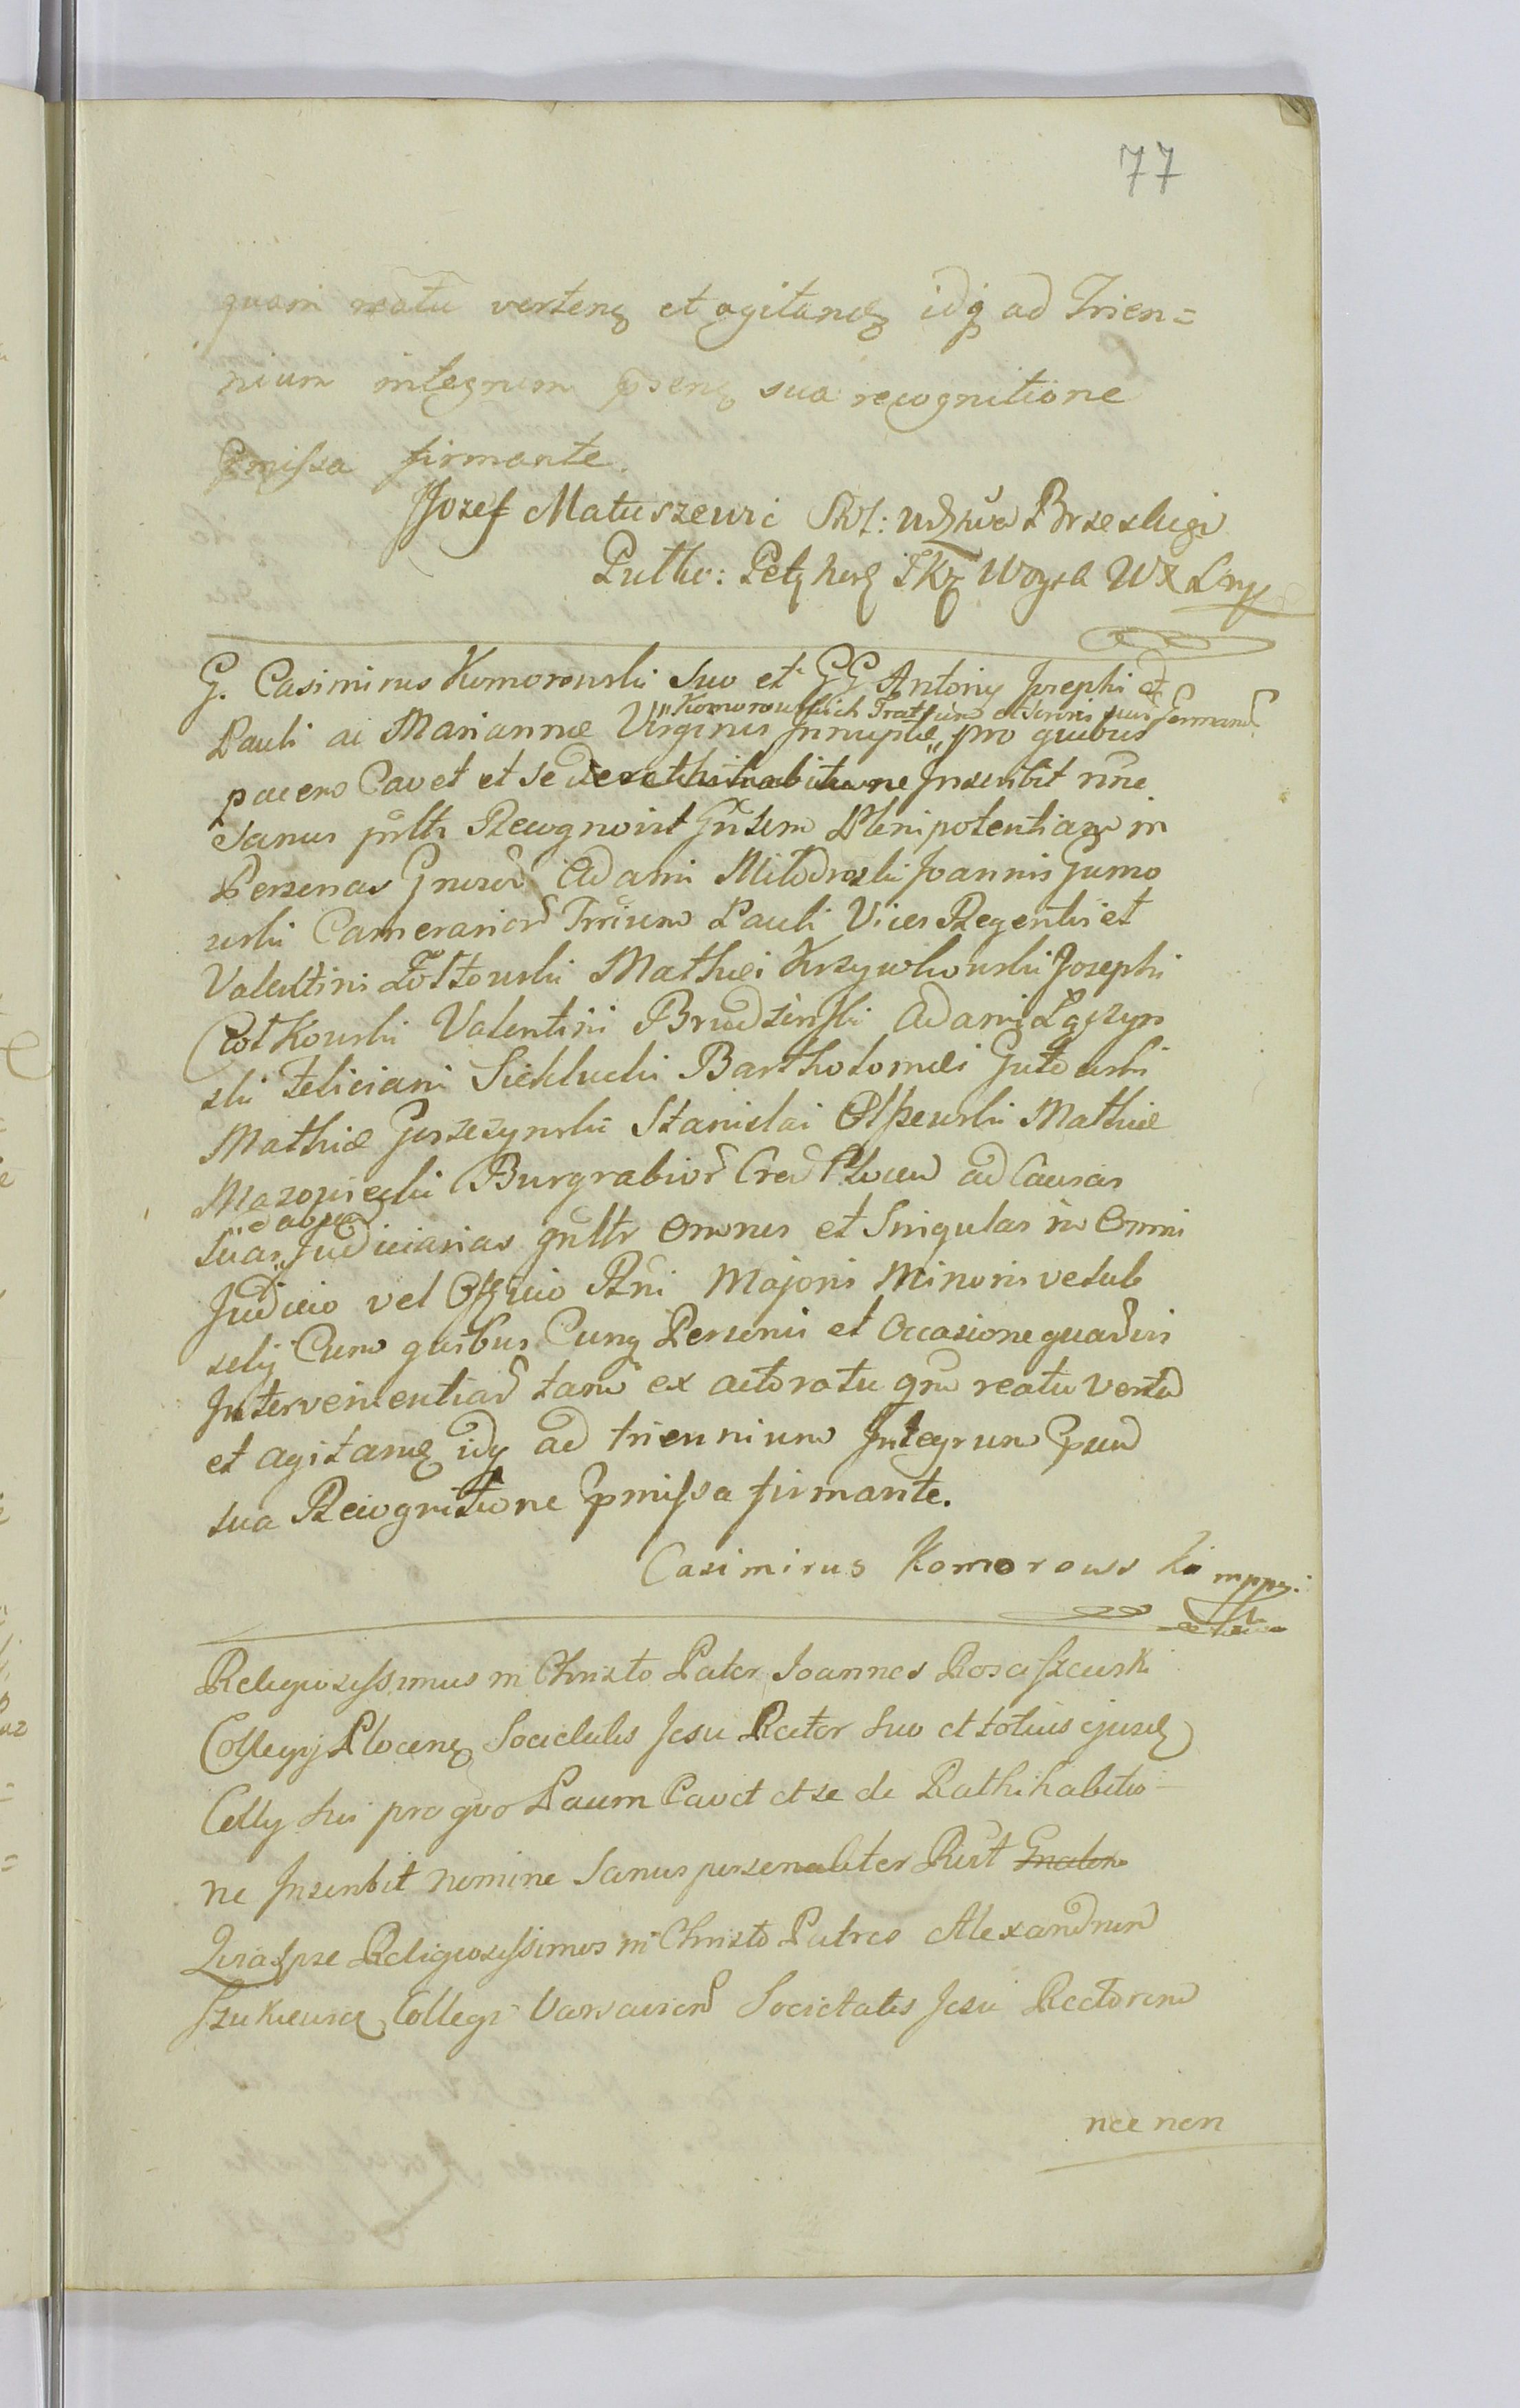 77
quam reatu verteng et agitandg idq ad Trien=
nium integrum pseng sua recognitione
pmissa firmante.
Jozef Matuszewic Skł:
Pułku:
G. Casimirus Komorowski suo et GG Antonij Josephi et
"Komorowskich Fratrum et Sororis suis Germanor
Pauli ac Mariannæ Virginis Innuptæ " pro quibus
pacero Cavet et se de rathihabitione Inscribit nne
Sanus psltr Recognovit Gnlem Plenipotentiam in
Personas Gnosor Adami Miłodroski Joannis Gumo
wski Camerarior Trium Pauli Vices Regentis et
Valentini Żółtowski Mathei Krzywkowski Josephi
Ciotkowski Valentini Brudzinski Adami Łączyn
ski Feliciani Sieklucki Bartholomæi Gutowski
Mathiæ Gorzezynski Stanislai Olszewski Mathiæ
Mazowiecki Burgrabior Cren Plocen ad Causas
suas " Judiciarias gnltr Omnes et Singulas in Omni
Judicio vel Officio Rni Majoris Minoris ve sub
selij Cum quibus Cunq Personis et Occasione quavis
Intervenientiar tam ex actoratu qm reatu verten
et agitandg idq ad triennium Integrum psen
sua Recognitione pmissa firmante.
Casimirus Komorowski mppr.
Religiosissimus in Christo Pater Joannes Rosciszewski
Collegij Ploceng Societatis Jesu Rector suo et totius ejusd
Colly sui pro quo Paum Cavet et se de Rathihabitio
ne Inscribit nomine Sanus personaliter Rcvit Gnalem
Religiosissimos in Christo Patres Alexandrum
Szukiewicz Collegi Varsavien Societatis Jesu Rectorem
nec non